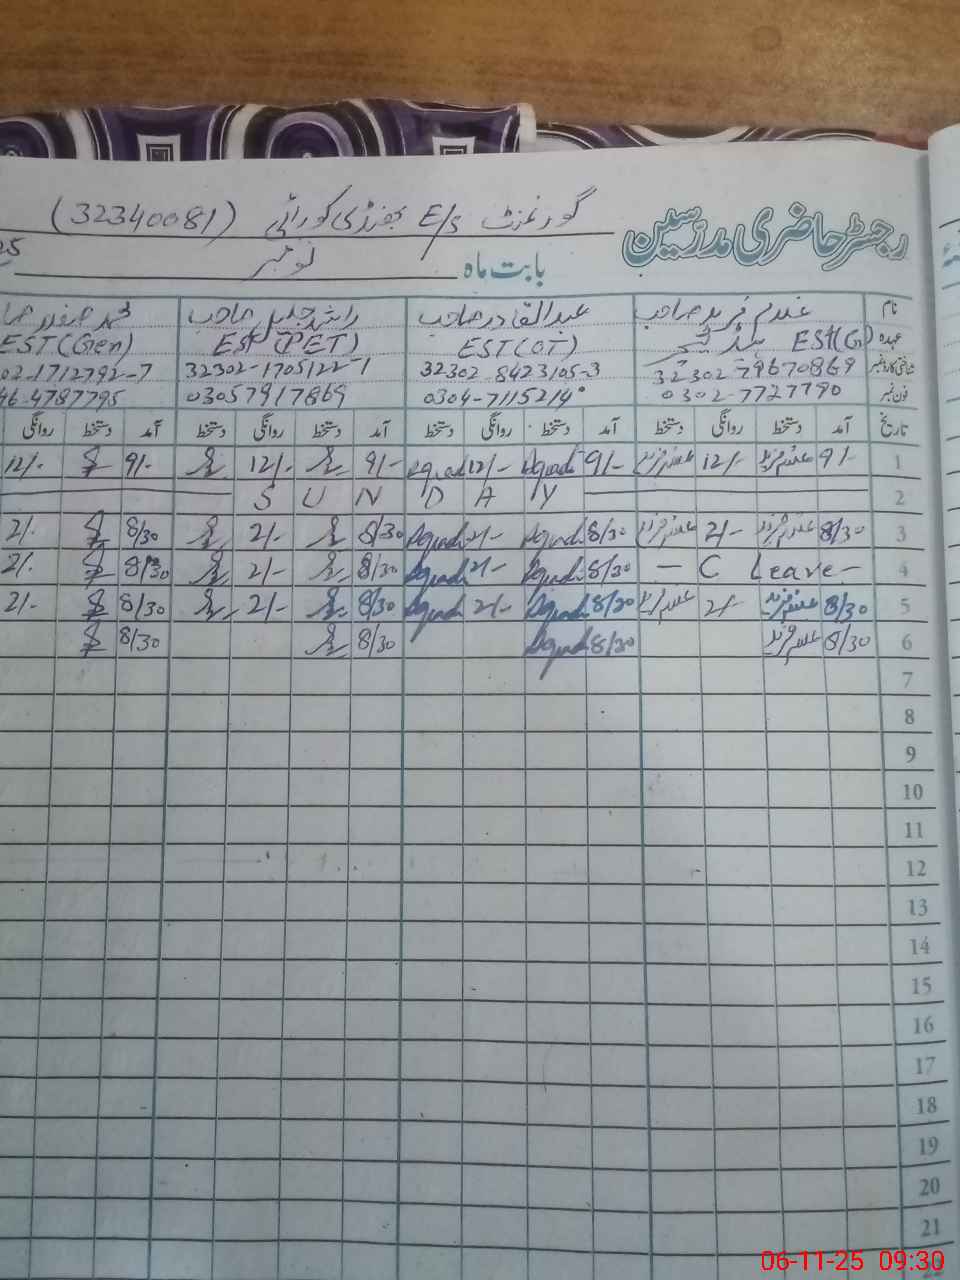 رجسٹر حاضری مدرسین
گورنمنٹ E/S (32340081)
بابت ماہ نومبر 25
نام غلام فرید صاحب عبدالقادر صاحب راشد جلیل صاحب محمد صفدر صا
عہدہ EST(G) ہیڈ ٹیچر EST(OT) EST (PET) EST(Gen)
شناختی کارڈ نمبر 32302-8423105-3 32302-1705122-1 02-1712792-7
فون نمبر 0302-7727790 0304-7115214 03057917869 46-4787795
تاریخ آمد دستخط روانگی دستخط آمد دستخط روانگی دستخط آمد دستخط روانگی دستخط آمد دستخط روانگی
1 9/- غلام فرید 12/- غلام فرید 9/- 12/- 9/- 12/- 9/- 12/-
2 S U N D A Y
3 8/30 غلام فرید 2/- غلام فرید 8/30 2/- 8/30 2/- 8/30 2/-
4 - C Leave - 8/30 2/- 8/30 2/- 8/30 2/-
5 8/30 غلام فرید 2/- غلام فرید 8/30 2/- 8/30 2/- 8/30 2/-
6 8/30 غلام فرید 8/30 8/30 8/30
7
8
9
10
11
12
13
14
15
16
17
18
19
20
21
06-11-25 09:30